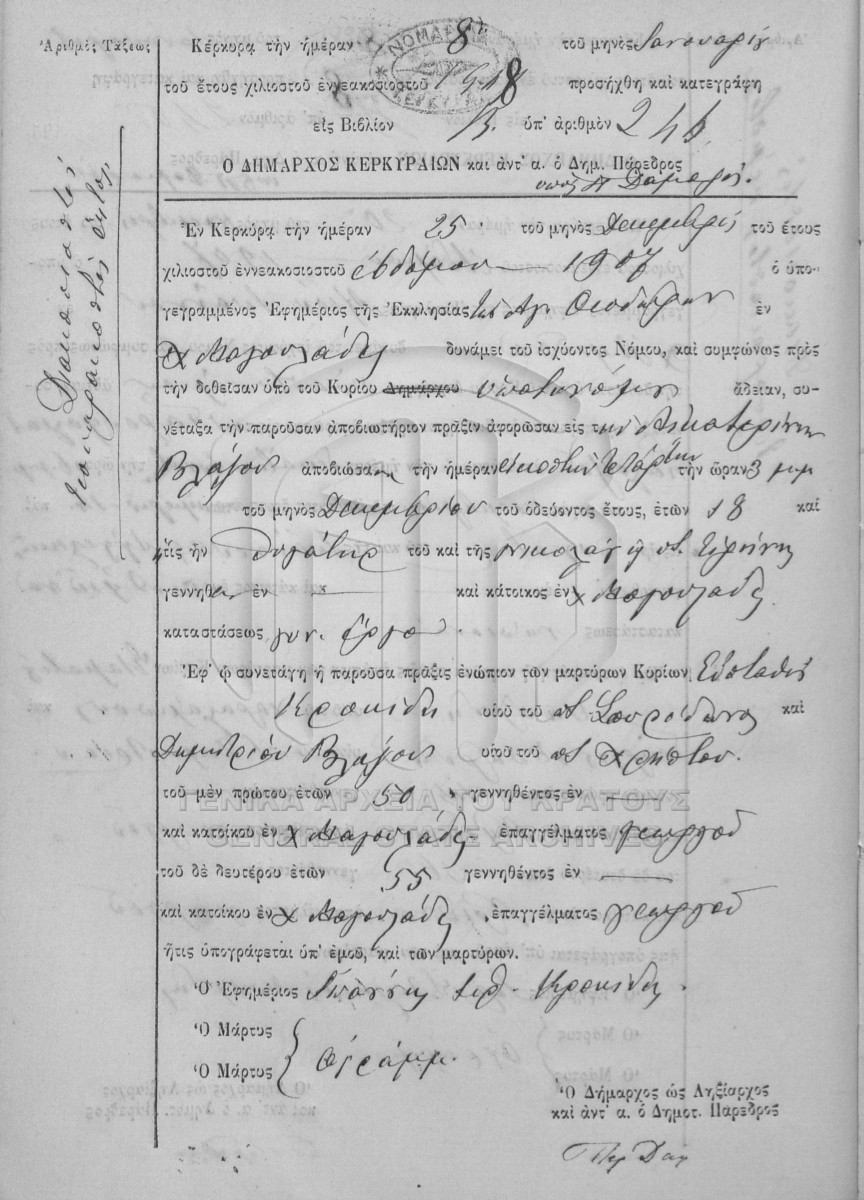 Ἀριθμὸς Τάξεως
Κέρκυρα τὴν ἡμέραν 8 τοῦ μηνὸς Ιανουαρίου
τοῦ ἔτους χιλιοστοῦ ἐννεακοσιοστοῦ 1908 προσήχθη καὶ κατεγράφη
εἰς Βιβλίον Β. ὑπ' ἀριθμὸν
Ο ΔΗΜΑΡΧΟΣ ΚΕΡΚΥΡΑΙΩΝ καὶ ἀντ' α. ὁ Δημ. Πάρεδρος
Ἐν Κερκύρᾳ τὴν ἡμέραν 25 τοῦ μηνὸς Δεκεμβρίου τοῦ ἔτους
χιλιοστοῦ ἐννεακοσιοστοῦ ἑβδόμου 1907 ὁ ὑπο-
γεγραμμένος Ἐφημέριος τῆς Ἐκκλησίας τῶν Αγ. Θεοδώρων ἐν
χ Μαγουλάδες δυνάμει τοῦ ἰσχύοντος Νόμου, καὶ συμφώνως πρὸς
τὴν δοθεῖσαν ὑπὸ τοῦ Κυρίου Δημάρχου ὑπαστυνόμου ἄδειαν, συ-
νέταξα τὴν παροῦσαν ἀποβιωτήριον πρᾶξιν ἀφορῶσαν εἰς τὴν Αἰκατερίνην
Βλάχου ἀποβιώσασαν τὴν ἡμέραν εἰκοστὴν τετάρτην τὴν ὥραν 3 μμ
τοῦ μηνὸς Δεκεμβρίου τοῦ ὁδεύοντος ἔτους, ἐτῶν 18 καὶ
τις ἦν θυγάτηρ τοῦ καὶ τῆς Νικολάου Εἰρήνης
γεννηθ ἐν — καὶ κάτοικος ἐν χ Μαγουλάδες
καταστάσεως γυν. ἔργα.
Ἐφ' ᾧ συνετάγη ἡ παροῦσα πρᾶξις ἐνώπιον τῶν μαρτύρων Κυρίων Εὐσταθίου
Κροκίδη υἱοῦ τοῦ Σπυρίδωνος καὶ
Δημητρίου Βλάχου υἱοῦ τοῦ Χρήστου.
τοῦ μὲν πρώτου ἐτῶν 50 γεννηθέντος ἐν —
ΓΕΝΙΚΑ ΑΡΧΕΙΑ ΤΟΥ ΚΡΑΤΟΥΣ
καὶ κατοίκου ἐν χ Μαγουλάδες ἐπαγγέλματος γεωργοῦ
GENERAL STATE ARCHIVES
τοῦ δὲ δευτέρου ἐτῶν 55 γεννηθέντος ἐν —
καὶ κατοίκου ἐν χ Μαγουλάδες ἐπαγγέλματος γεωργοῦ
ἥτις ὑπογράφεται ὑπ' ἐμοῦ, καὶ τῶν μαρτύρων.
Ὁ Ἐφημέριος Ἰωάννης Κροκίδης.
Ὁ Μάρτυς
Ὁ Μάρτυς Ἀγράμμ.
Ὁ Δήμαρχος ὡς Ληξίαρχος
καὶ ἀντ' α. ὁ Δημοτ. Πάρεδρος